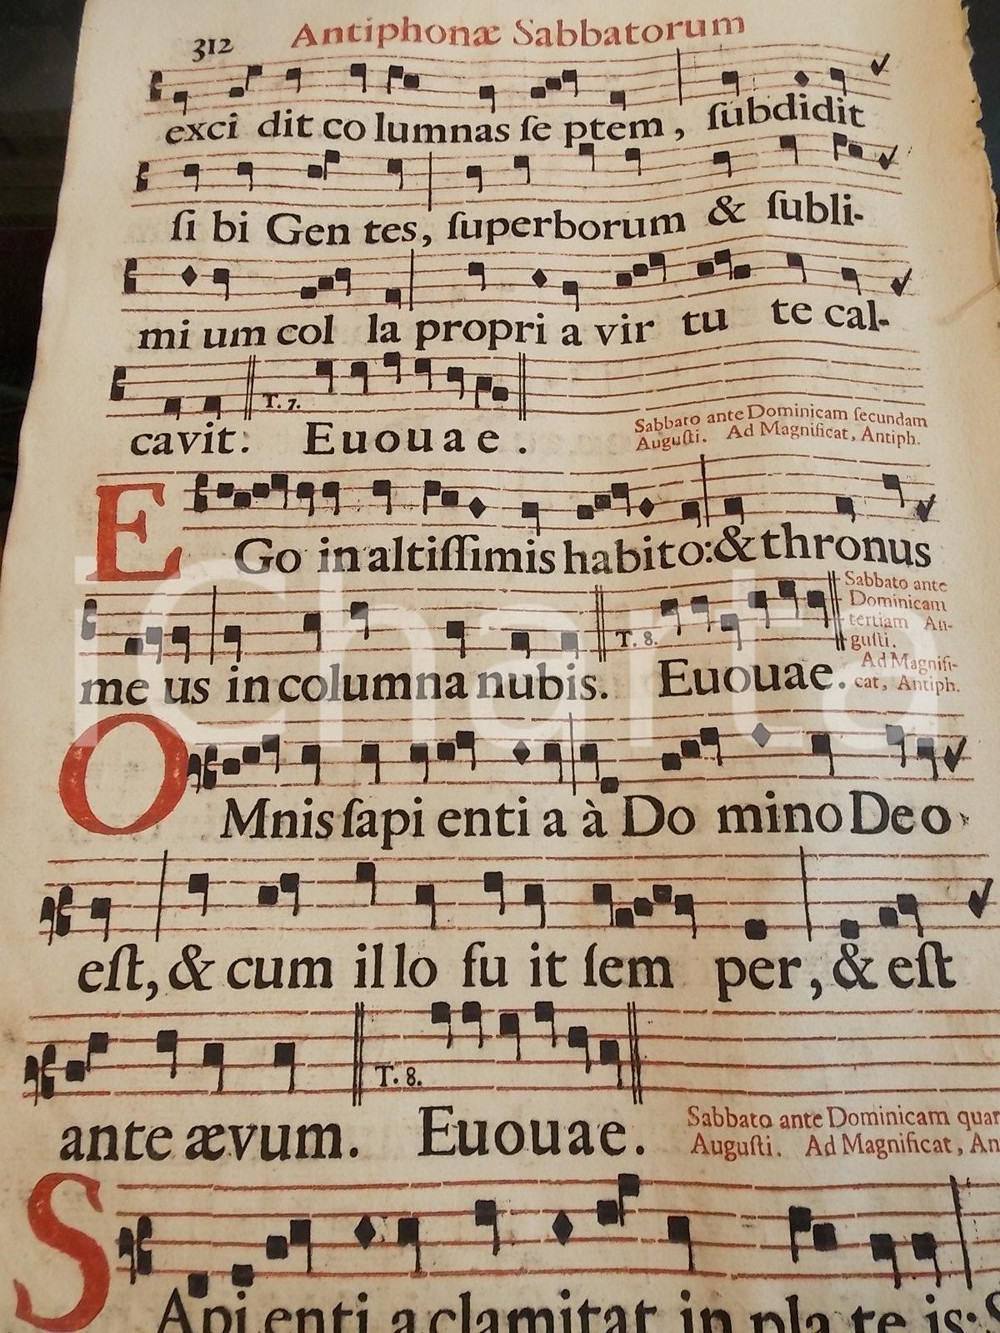 312 Antiphonæ Sabbatorum
exci dit co lumnas ſe ptem, ſubdidit
ſi bi Gen tes, ſuperborum & ſubli-
mi um col la propri a vir tu te cal-
T. 7.
cavit: Euouae.
Sabbato ante Dominicam ſecundam
Auguſti. Ad Magnificat, Antiph.
EGo in altiſſimis habito: & thronus
T. 8.
me us in columna nubis. Euouae.
Sabbato ante
Dominicam
tertiam Au-
guſti.
Ad Magnifi-
cat, Antiph.
OMnis ſapi enti a à Do mino Deo
eſt, & cum il lo fu it ſem per, & eſt
T. 8.
ante ævum. Euouae.
Sabbato ante Dominicam quar
Auguſti. Ad Magnificat, An
SApi enti a clamitat in pla te is: S
iCharta